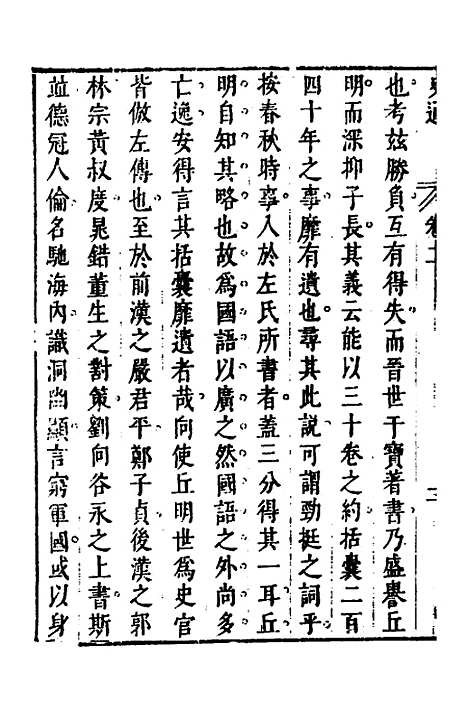 史通 卷二
也考兹勝負互有得失而晉世干寶著書乃盛譽丘
明而深抑子長其義云能以三十卷之約括囊二百
四十年之事靡有遺也尋其此說可謂勁挺之詞乎
按春秋時事入於左氏所書者蓋三分得其一耳丘
明自知其略也故爲國語以廣之然國語之外尚多
亡逸安得言其括囊靡遺者哉向使丘明世爲史官
皆倣左傳也至於前漢之嚴君平鄭子貞後漢之郭
林宗黃叔度晁錯董生之對策劉向谷永之上書斯
竝德冠人倫名馳海内識洞幽顯言窮軍國或以身